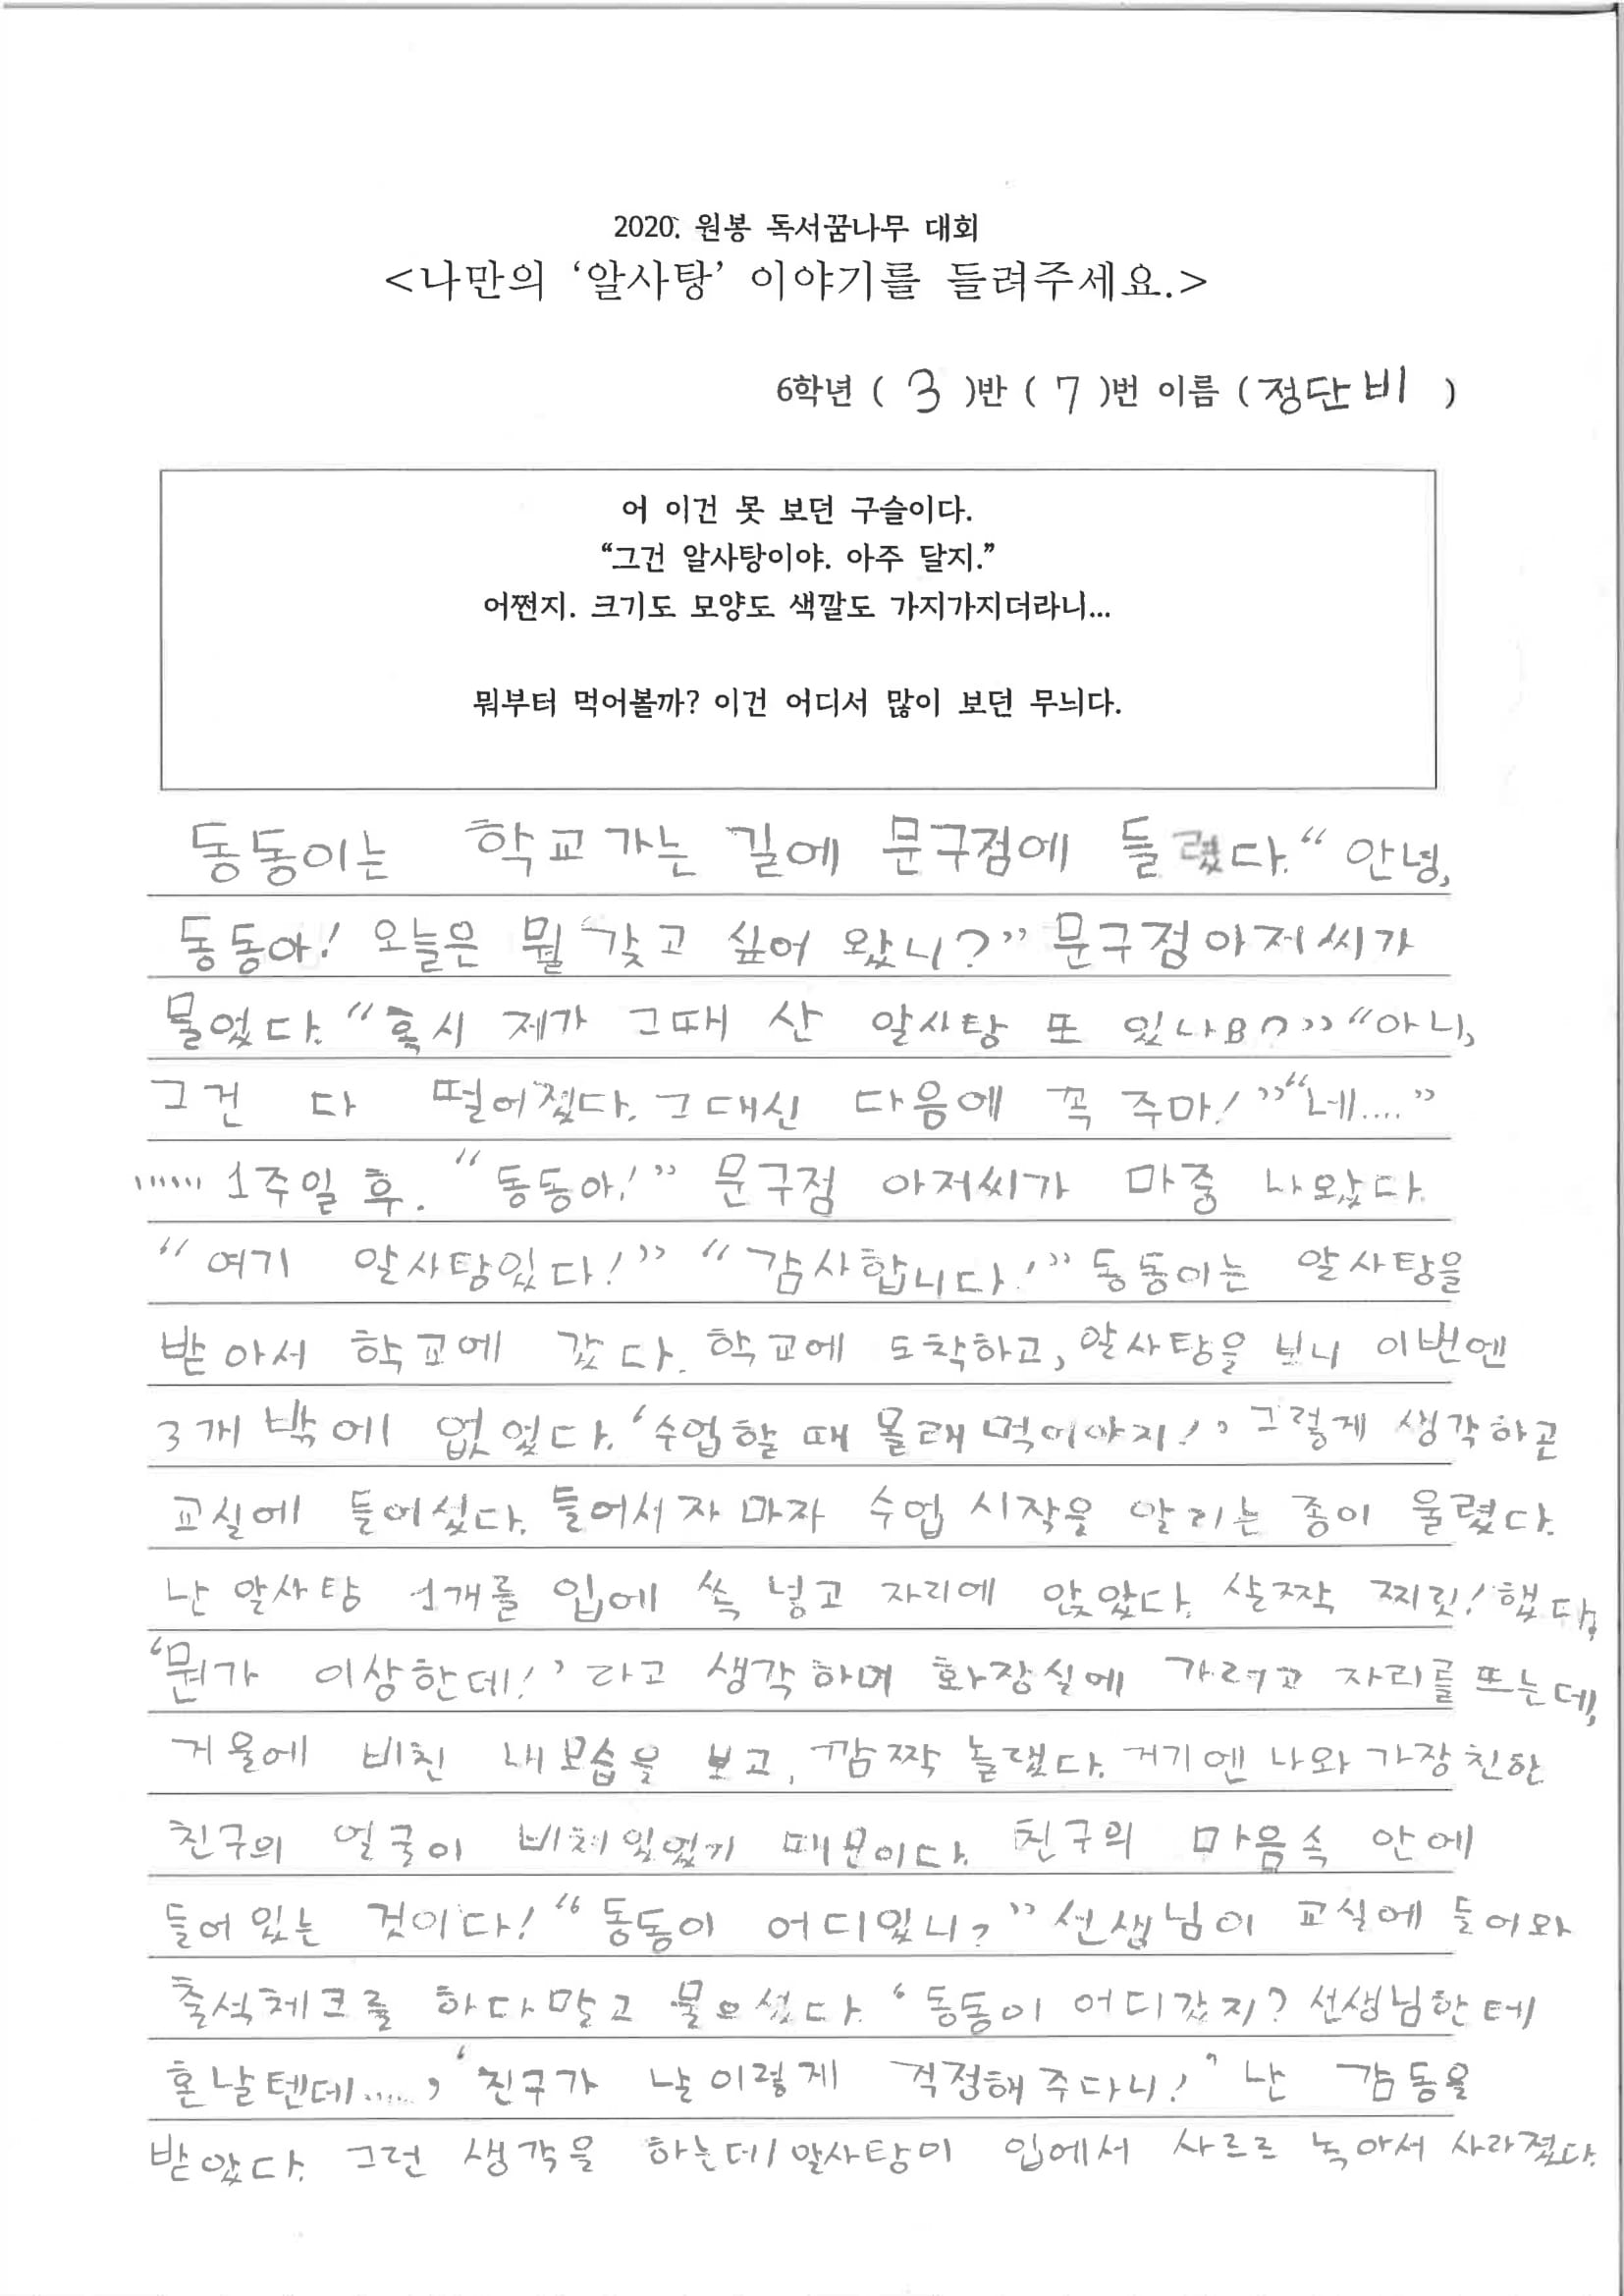 2020. 원봉 독서꿈나무 대회
<나만의 ‘알사탕’ 이야기를 들려주세요.>
6학년 ( 3 )반 ( 7 )번 이름 ( 정단비 )
어 이건 못 보던 구슬이다.
“그건 알사탕이야. 아주 달지.”
어쩐지. 크기도 모양도 색깔도 가지가지더라니...
뭐부터 먹어볼까? 이건 어디서 많이 보던 무늬다.
동동이는 학교가는 길에 문구점에 들렀다. “안녕,
동동아! 오늘은 뭘 갖고 싶어 왔니?” 문구점아저씨가
물었다. “혹시 제가 그때 산 알사탕 또 있나요?” “아니,
그건 다 떨어졌다. 그대신 다음에 꼭 주마!” “네....”
...... 1주일 후. “동동아!” 문구점 아저씨가 마중 나왔다.
“여기 알사탕있다!” “감사합니다!” 동동이는 알사탕을
받아서 학교에 갔다. 학교에 도착하고, 알사탕을 보니 이번엔
3개 밖에 없었다. ‘수업할 때 몰래 먹어야지!’ 그렇게 생각하곤
교실에 들어섰다. 들어서자 마자 수업 시작을 알리는 종이 울렸다.
난 알사탕 1개를 입에 쏙 넣고 자리에 앉았다. 살짝 찌릿! 했다.
‘뭔가 이상한데!’ 라고 생각하며 화장실에 가려고 자리를 뜨는데,
거울에 비친 내모습을 보고, 깜짝 놀랬다. 거기엔 나와 가장 친한
친구의 얼굴이 비쳐있었기 때문이다. 친구의 마음속 안에
들어있는 것이다! “동동이 어디있니?” 선생님이 교실에 들어와
출석체크를 하다말고 물으셨다. ‘동동이 어디갔지? 선생님한테
혼날텐데......’ ‘친구가 날 이렇게 걱정해주다니!’ 난 감동을
받았다. 그런 생각을 하는데 알사탕이 입에서 사르르 녹아서 사라졌다.